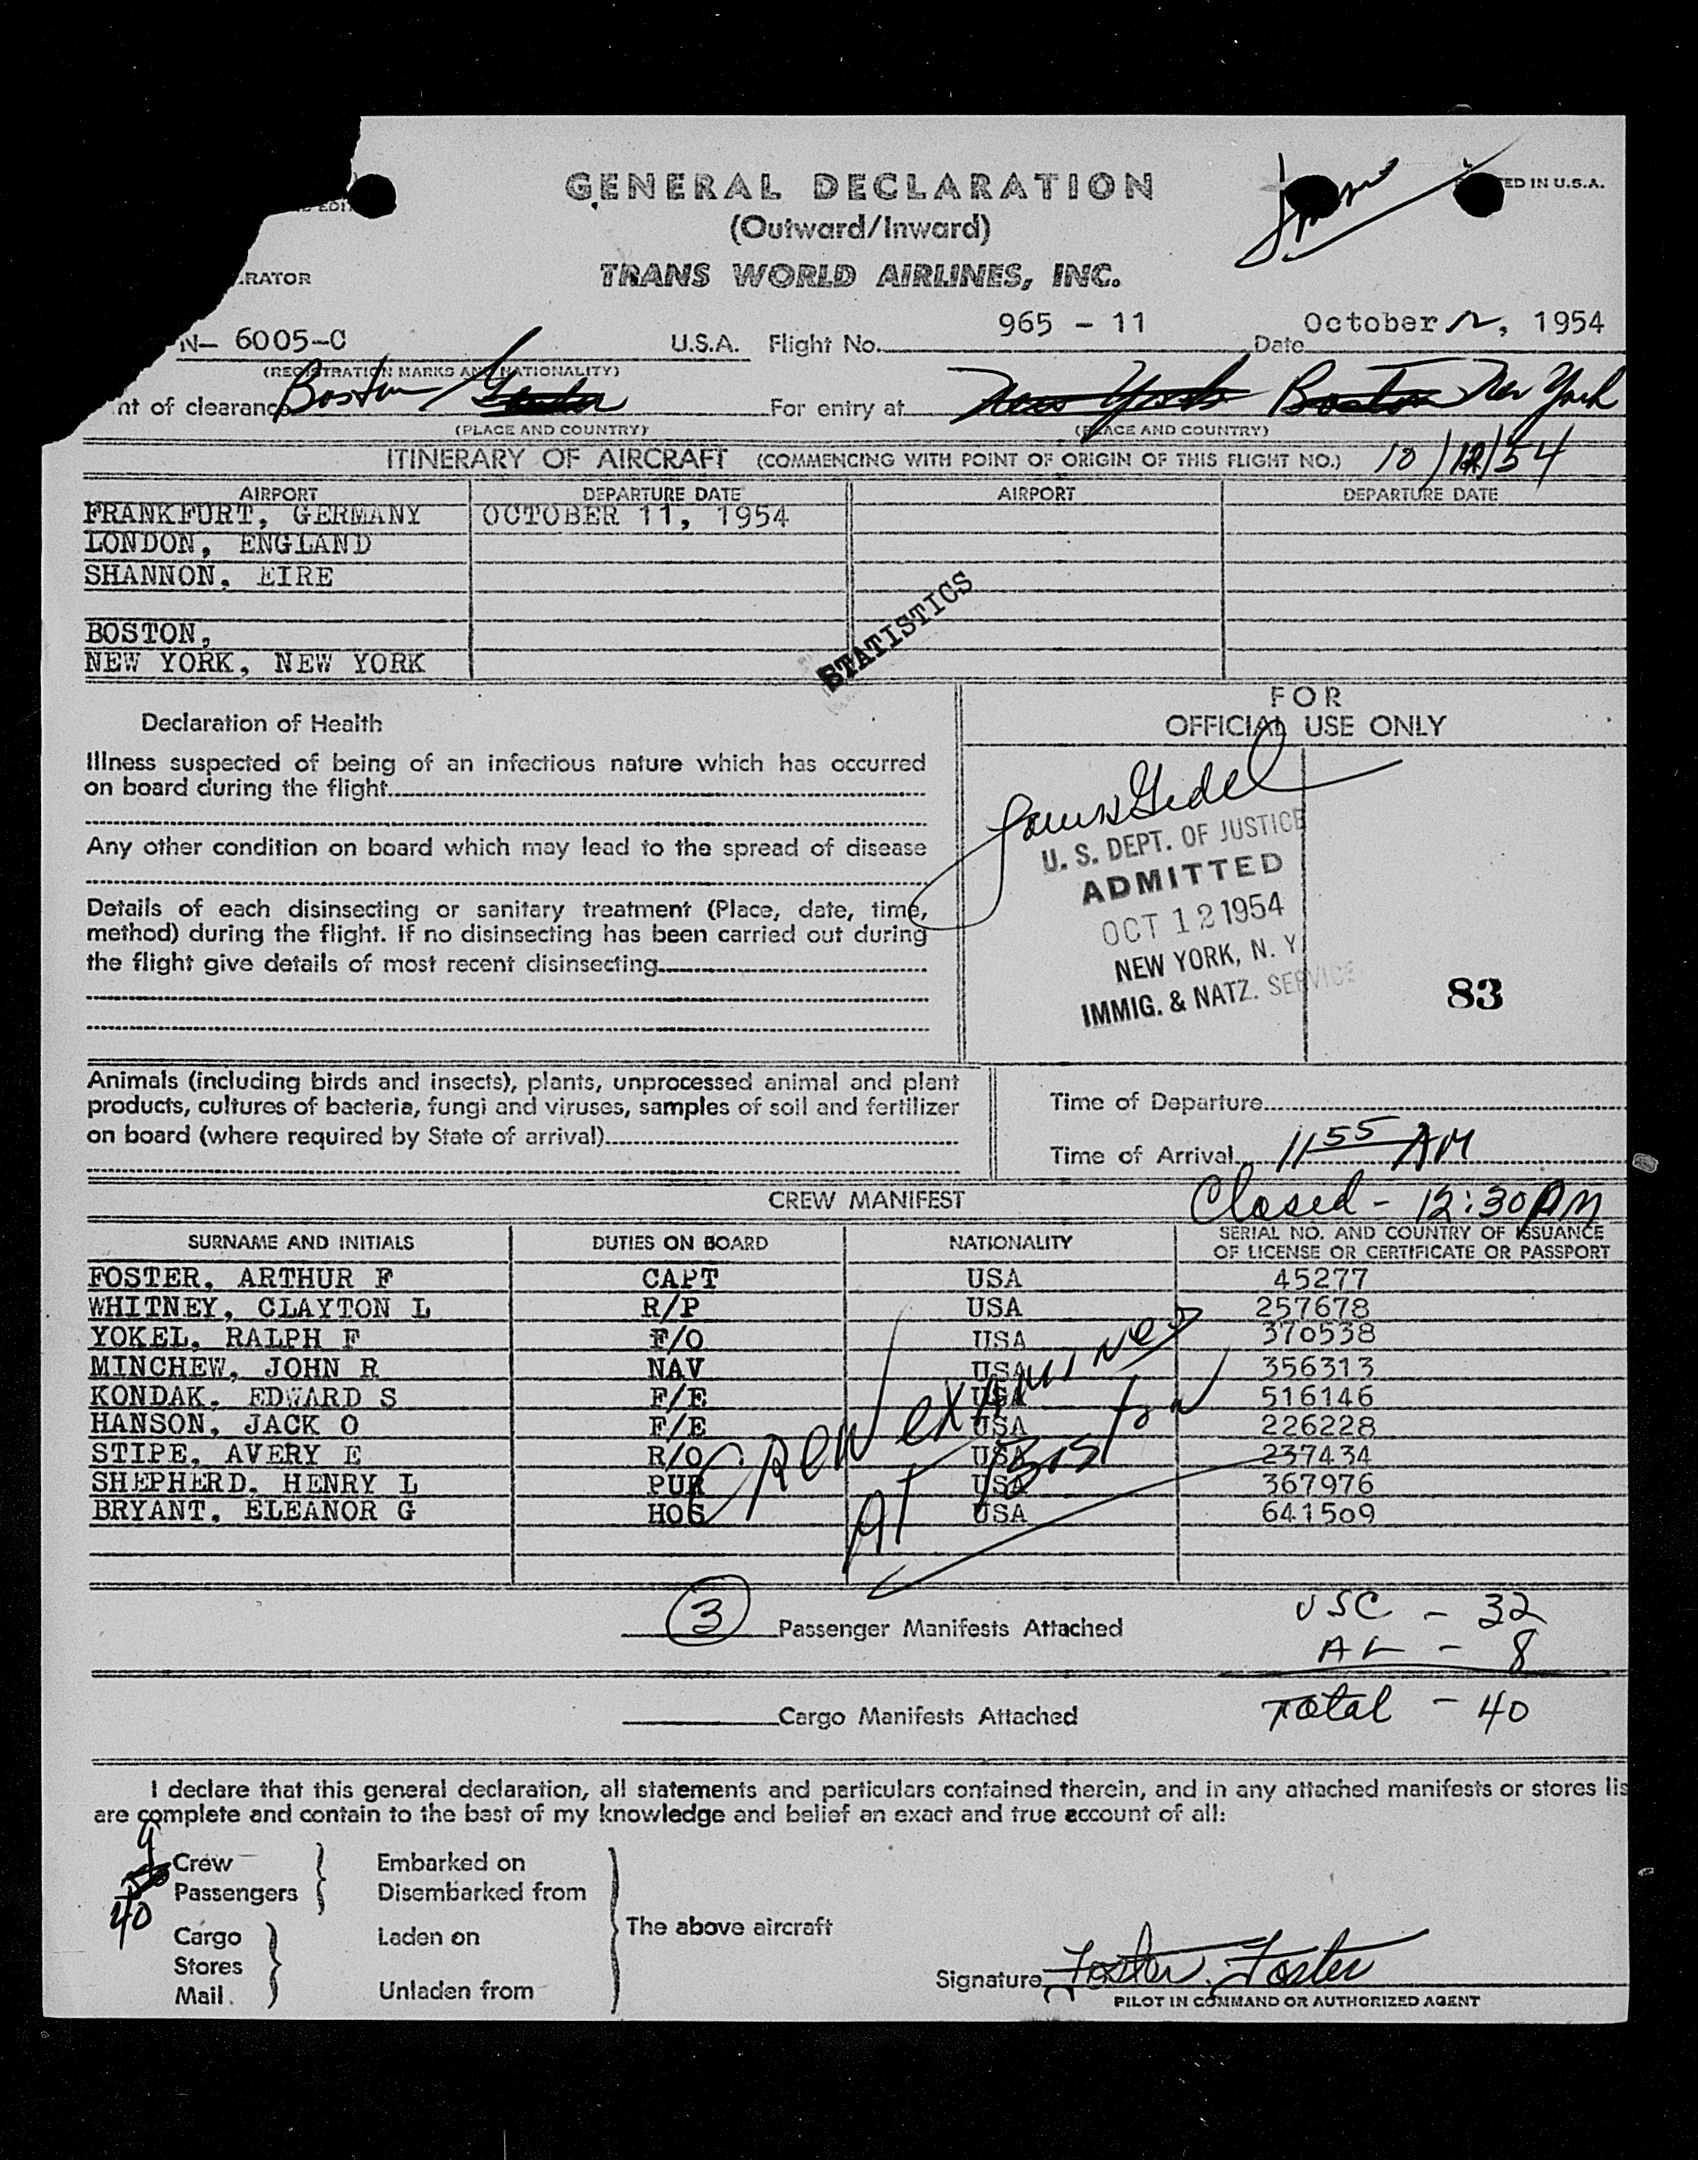 GENERAL DECLARATION
(Outward/Inward)
ED IN U.S.A.
RATOR
TRANS WORLD AIRLINES, INC.
N- 6005-C U.S.A. Flight No. 965 - 11 Date October 12, 1954
(REGISTRATION MARKS AND NATIONALITY)
nt of clearance Boston For entry at New York Boston New York
(PLACE AND COUNTRY) (PLACE AND COUNTRY)
ITINERARY OF AIRCRAFT (COMMENCING WITH POINT OF ORIGIN OF THIS FLIGHT NO.) 10/12/54
AIRPORT DEPARTURE DATE AIRPORT DEPARTURE DATE
FRANKFURT, GERMANY OCTOBER 11, 1954
LONDON, ENGLAND
SHANNON, EIRE
BOSTON,
NEW YORK, NEW YORK
STATISTICS
Declaration of Health
Illness suspected of being of an infectious nature which has occurred
on board during the flight
Any other condition on board which may lead to the spread of disease
Details of each disinsecting or sanitary treatment (Place, date, time,
method) during the flight. If no disinsecting has been carried out during
the flight give details of most recent disinsecting
FOR
OFFICIAL USE ONLY
U. S. DEPT. OF JUSTICE
ADMITTED
OCT 12 1954
NEW YORK, N. Y.
IMMIG. & NATZ. SERVICE
83
Animals (including birds and insects), plants, unprocessed animal and plant
products, cultures of bacteria, fungi and viruses, samples of soil and fertilizer
on board (where required by State of arrival)
Time of Departure
Time of Arrival 11 55 AM
CREW MANIFEST Closed - 12:30 PM
SURNAME AND INITIALS DUTIES ON BOARD NATIONALITY SERIAL NO. AND COUNTRY OF ISSUANCE
OF LICENSE OR CERTIFICATE OR PASSPORT
FOSTER, ARTHUR F CAPT USA 45277
WHITNEY, CLAYTON L R/P USA 257678
YOKEL, RALPH F F/O USA 370538
MINCHEW, JOHN R NAV USA 356313
KONDAK, EDWARD S F/E USA 516146
HANSON, JACK O F/E USA 226228
STIPE, AVERY E R/O USA 237434
SHEPHERD, HENRY L PUR USA 367976
BRYANT, ELEANOR G HOS USA 641509
CREW EXAMINED
AT Boston
3 Passenger Manifests Attached
USC - 32
AL - 8
Total - 40
Cargo Manifests Attached
I declare that this general declaration, all statements and particulars contained therein, and in any attached manifests or stores lis
are complete and contain to the best of my knowledge and belief an exact and true account of all:
9 Crew Embarked on
40 Passengers Disembarked from
The above aircraft
Cargo Laden on
Stores
Mail Unladen from
Signature Foster
PILOT IN COMMAND OR AUTHORIZED AGENT